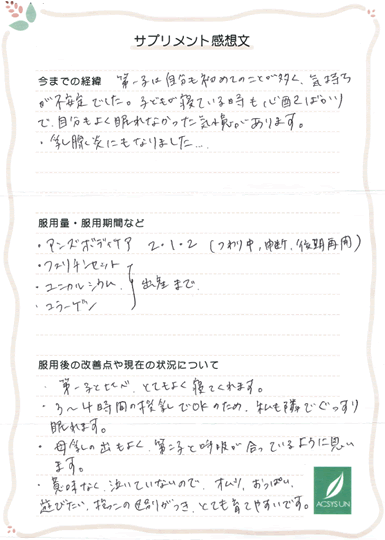 サプリメント感想文
今までの経緯 第一子は自分も初めてのことが多く、気持ち
が不安定でした。子どもが寝ている時も心配ばかり
で、自分もよく眠れなかった気憶があります。
・乳腺炎にもなりました…
服用量・服用期間など
・アンズボディケア 2・1・2 (つわり中,中断,後期再開)
・フェリチンセット
・ユニカルシウム 出産まで
・コラーゲン
服用後の改善点や現在の状況について
・第一子と比べ、とてもよく寝てくれます。
・3〜4時間の授乳でOKのため、私も隣でぐっすり
眠れます。
・母乳の出もよく、第二子と呼吸が合っているように思い
ます。
・意味なく泣いていないので、オムツ、おっぱい、
遊びたい、抱っこの区別がつき、とても育てやすいです。
ACSYSUN